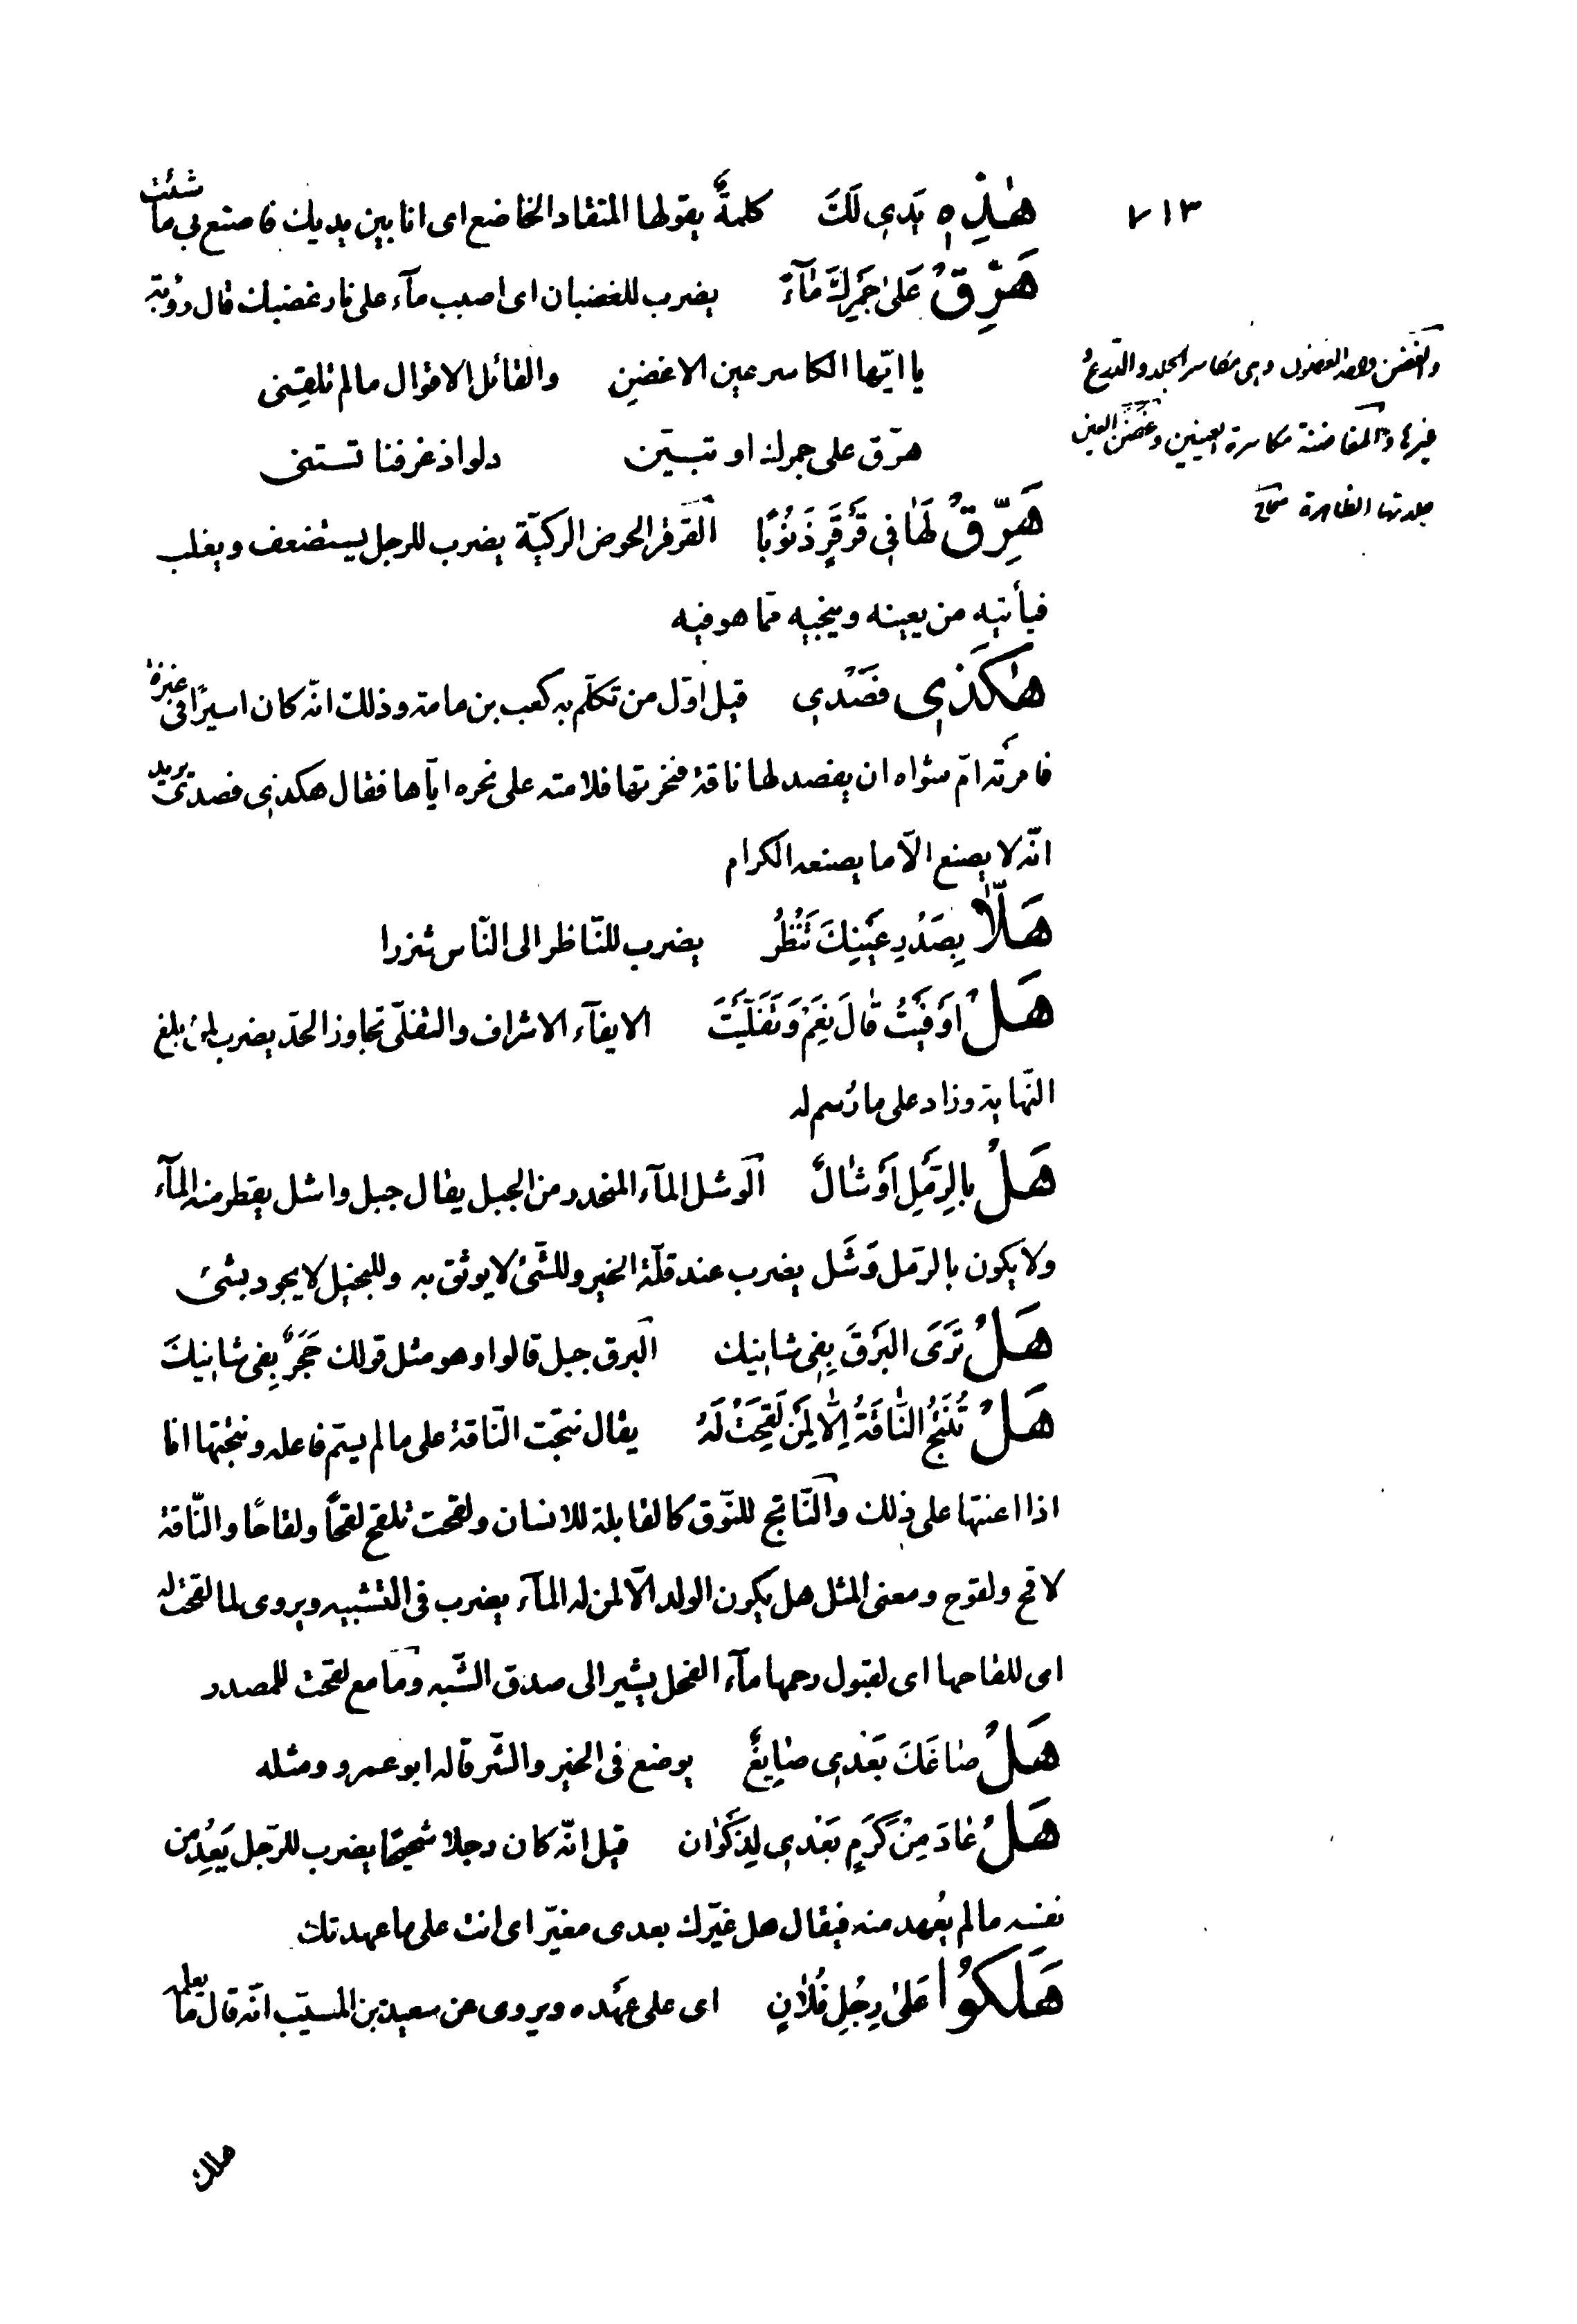 ٧١٣
هٰذِهِ يَدِي لَكَ كلمةٌ يقولها المنقاد الخاضع اى انا بين يديك فاصنع بي ما شئت
هَرِّقْ عَلىٰ جَمْرِكَ مٰآءً يضرب للغضبان اى اصبب مآء على نار غضبك قال رؤبة
يا ايّها الكاسر عين الاغضنِ والقائل الاقوال مالم تلقِنى
هرّق على جمرك او تبيّن دلو اذ غرفنا تستنى
هَرِّقْ لَهٰا فِي قَرْقَرٍ ذَنُوبًا القرقر الحوض الركيّة يضرب للرجل يستضعف ويغلب
فيأتيه من يعينه وينجيه ممّا هو فيه
هٰكَذٰي فَصْدِي قيل اوّل من تكلّم به كعب بن مامة وذلك انّه كان اسيرًا فى عنزة
فامرته امّ مثواه ان يفصد لها ناقة فنحرتها فلامته على نحره ايّاها فقال هكذى فصدى يريد
انّه لا يصنع الّا ما يصنعه الكرام
هَلّاٰ بِصَدْرِ عَيْنِكَ تَنْظُرُ يضرب للنّاظر الى النّاس شزرا
هَلْ اَوْفَيْتُ قٰالَ نِعَمْ وَتَفَلَّيْتَ الايفآء الاشراف والتفلّى تجاوز الحدّ يضرب لمن بلغ
النّهاية وزاد على ما رُسم له
هَلْ بِالرَّمْلِ اَوْشٰالٌ الوشل المآء المنحدر من الجبل يقال جبل واشل يقطر منه المآء
ولا يكون بالرّمل وَشَل يضرب عند قلّة الخير وللشّىء لا يوثق به وللبخيل لا يجود بشىء
هَلْ تَرَى البَرْقَ بِفِى شانِيك البرق جبل قالوا وهو مثل قولك حَجَرٌ بِفى شانِيكَ
هَلْ تُنْتَجُ النّٰاقَةُ اِلّٰا لِمَنْ لَقِحَتْ لَهُ يقال نتجت النّاقة على مالم يسمّ فاعله ونتجتها انا
اذا اعنتها على ذلك والنّاتج للنّوق كالقابلة للانسان ولقحت تلقح لقحًا ولقاحًا والنّاقة
لاقح ولقوح ومعنى المثل هل يكون الولد الّا لمن له المآء يضرب فى التشبيه ويروى لما لقحت له
اى للقاحها اى لقبول رحمها مآء الفحل يشير الى صدق الشّبه وما مع لقحت للمصدر
هَلْ صٰاغَكَ بَعْدِي صٰايِغٌ يوضع فى الخير والشّر قاله ابو عمرو ومثله
هَلْ عٰادَ مِنْ كَرَمٍ بَعْدِي لِذَكْوٰان قيل انّه كان رجلا شحيحًا يضرب للرّجل يَعِدُ من
نفسه مالم يُعهد منه فيقال هل غيّرك بعدى مغيّر اى انت على ما عهدتك
هَلَكُوا عَلىٰ رِجْلِ فُلٰانٍ اى على عهده ويروى عن سعيد بن المسيّب انّه قال ما يعلمه
والغضن واحد الغضون وهى مكاسر الجلد والدّرع
غيرها والمغاضنة مكاسرة العينين وغضن العين
جلدتها الظاهرة صحاح
هلك